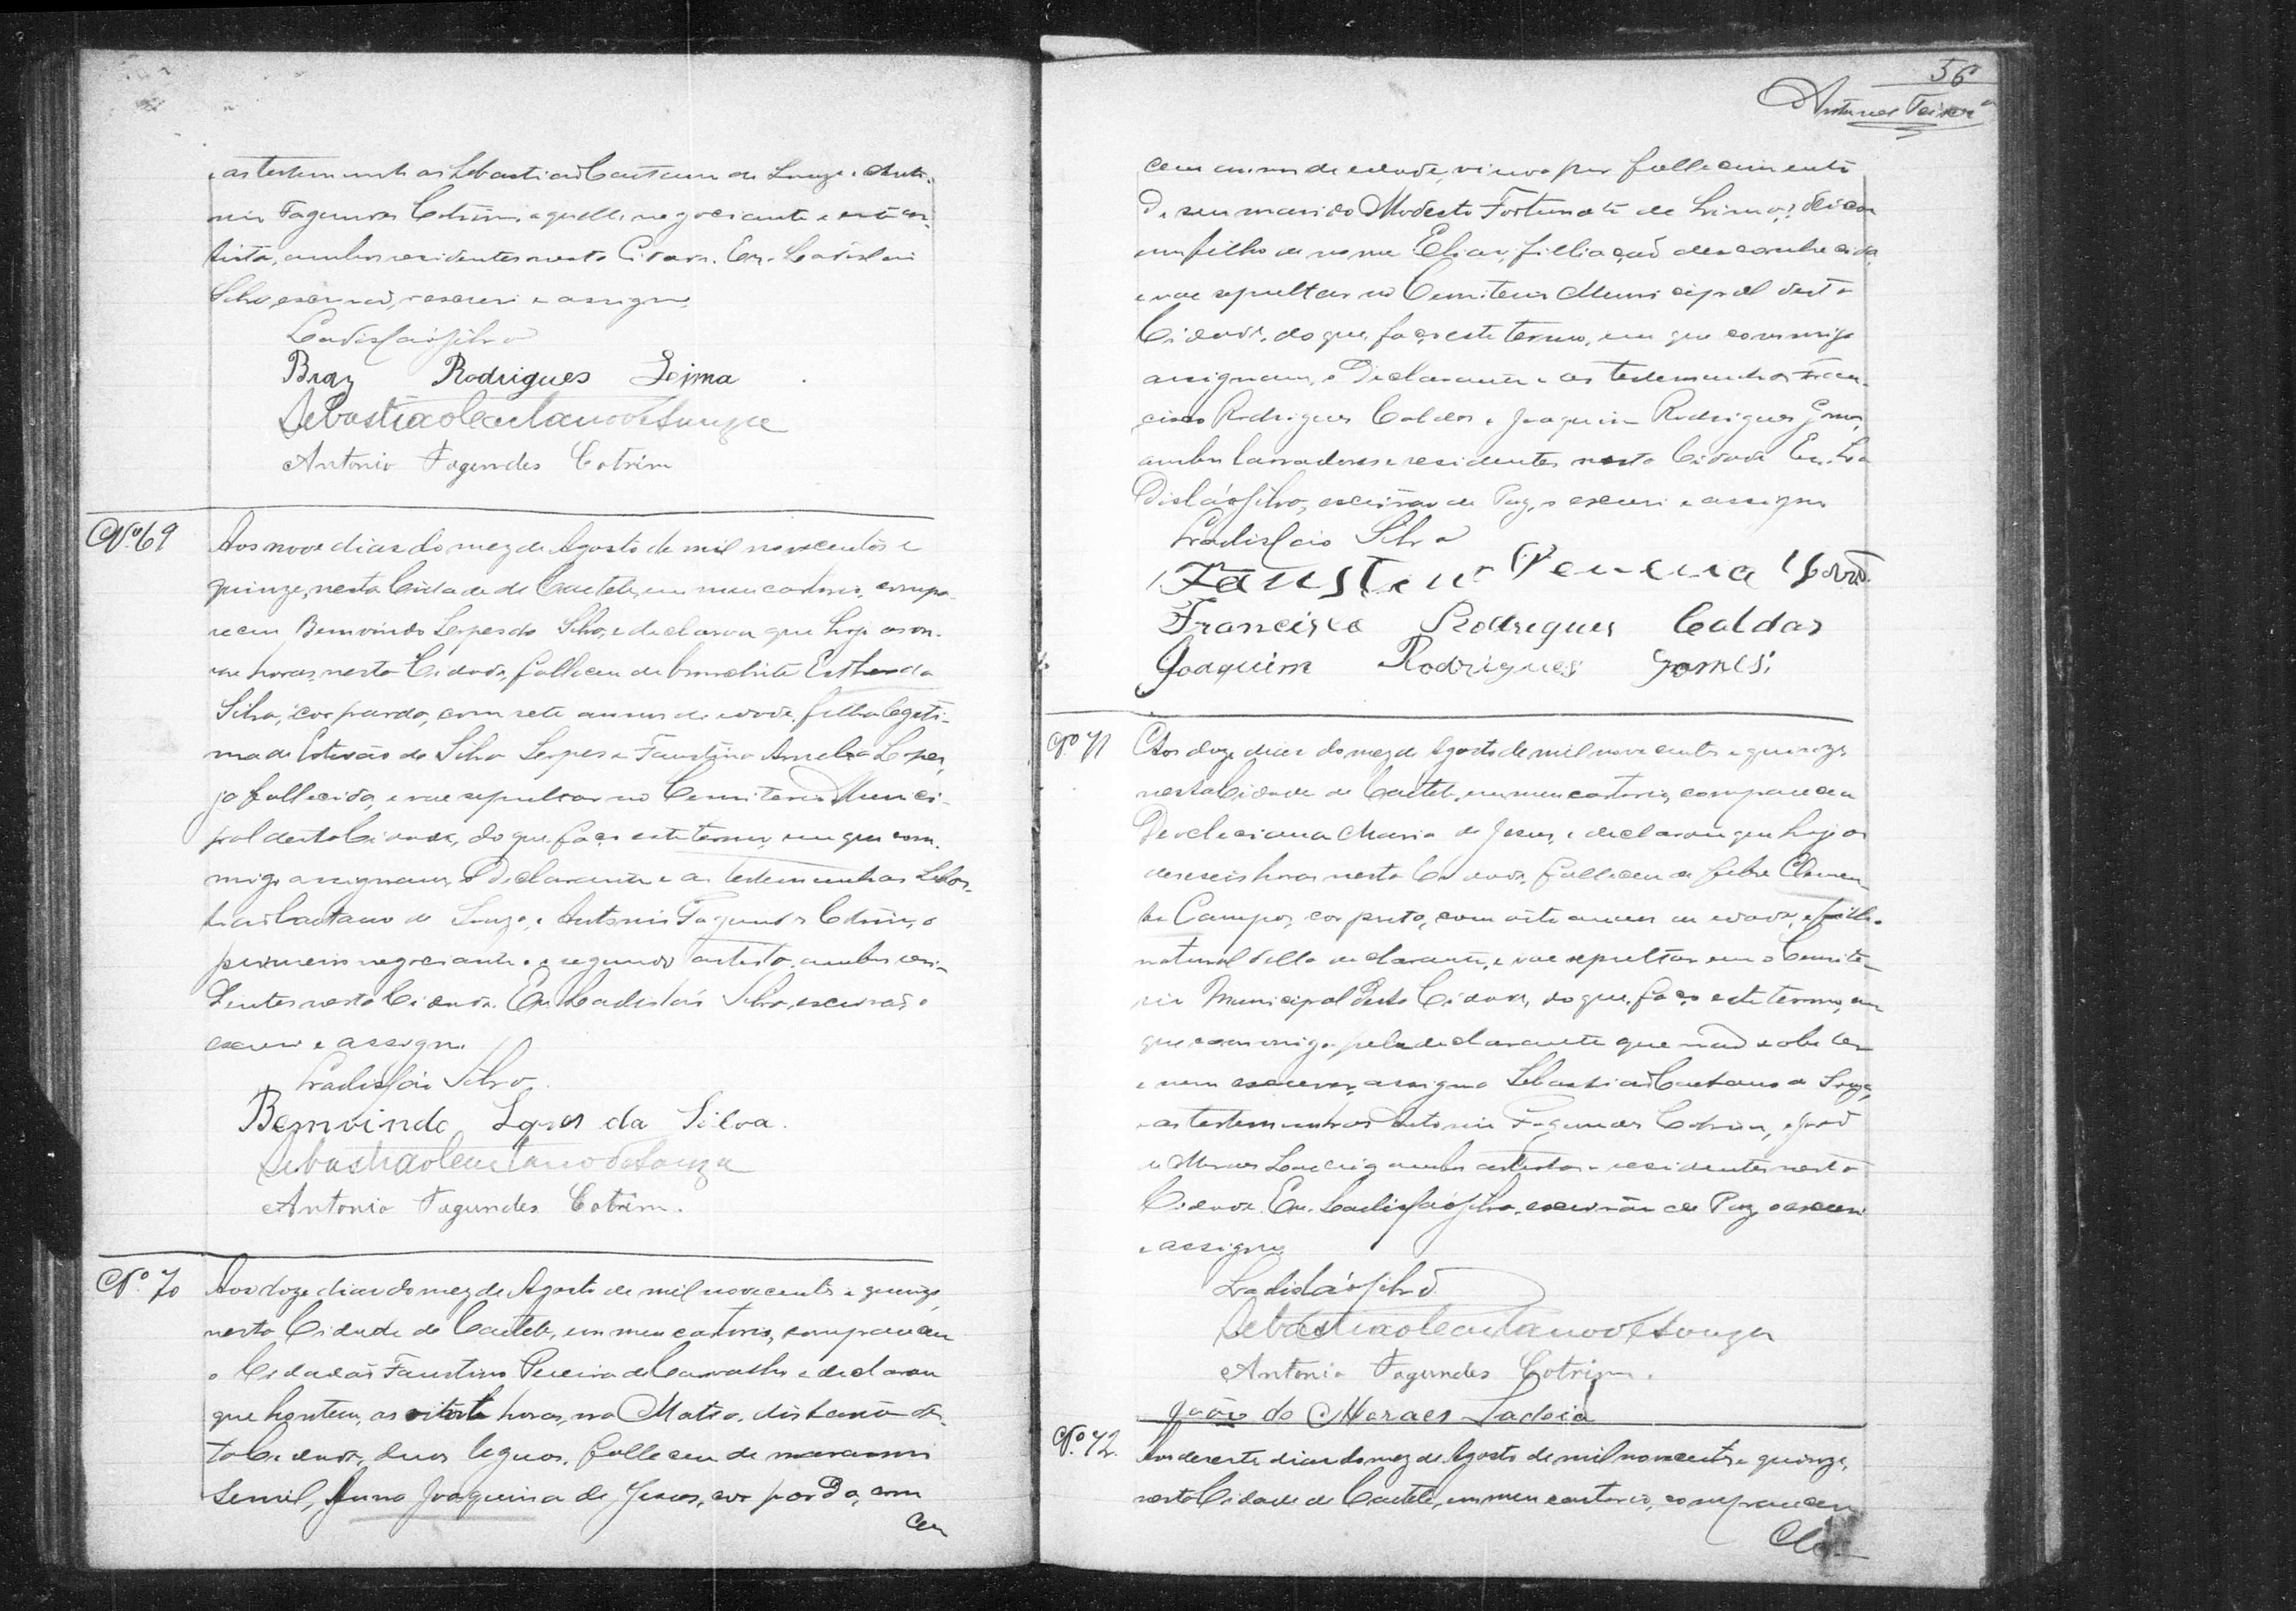 as testemunhas Sebastião Caetano de Souza e Anto-
nio Fagundes Cotrim, aquelle negociante e este ar-
tista, ambos residentes nesta Cidade. Eu, Ladislau
Silva, escrivão, o escrevi e assigno.
Ladisláo Silva
Braz Rodrigues Leima
Sebastião Caetano de Souza
Antonio Fagundes Cotrim
Nº 69
Aos nove dias do mez de Agosto de mil novecentos e
quinze, nesta Cidade de Caeteté, em meu cartorio, compa-
receu Bemvindo Lopes da Silva, e declarou que hoje as on-
ze horas, nesta Cidade, falleceu de bronchite Esther da
Silva, cor parda, com sete annos de edade, filha legiti-
ma de Estevão da Silva Lopes e Faustina Amelia Lopes,
ja fallecida, e vae sepultar no Cemiterio Munici-
pal desta Cidade, do que faço este termo, em que com-
migo assignam, o Declarante e as testemunhas Sebas-
tião Caetano de Souza, e Antonio Fagundes Cotrim, o
primeiro negociante e o segundo artista, ambos resi-
dentes nesta Cidade. Eu Ladisláo Silva, escrivão o
escrevi e assigno.
Ladisláo Silva
Bemvindo Lopes da Silva.
Sebastião Caetano de Souza
Antonio Fagundes Cotrim.
Nº 70
Aos doze dias do mez de Agosto de mil novecentos e quinze,
nesta Cidade de Caeteté, em meu cartorio, compareceu
o Cidadão Faustino Pereira de Carvalho e declarou
que hontem, as horas, no Matto, distante des-
ta Cidade, duas leguas, falleceu de marasmo
senil, Anna Joaquina de Jesus, cor parda, com
cem
56
Antunes Teixeira
cem annos de edade, viuva por fallecimento
de seu marido Modesto Fortunato de deixou
um filho de nome Elias, filiação desconhecida
e vae sepultar no Cemiterio Municipal desta
Cidade, do que, faço este termo, em que commigo
assignam, o Declarante e as testemunhas Fran-
cisco Rodrigues Caldas e Joaquim Rodrigues Gomes,
ambos lavradores e residentes nesta Cidade Eu, La
disláo Silva, escrivão de Paz, o escrevi e assigno
Ladisláo Silva
Faustino Pereira
Francisco Rodrigues Caldas
Joaquim Rodrigues Gomes.
Nº 71
Aos doze dias do mez de Agosto de mil novecentos e quinze
nesta Cidade de Caeteté, em meu cartorio, compareceu
Deocleciana Maria de Jesus, e declarou que hoje as
deseseis horas nesta Cidade, falleceu de febre Clemen-
te Campos, cor preta, com oito annos de edade, filho
natural della declarante, e vae sepultar em o Cemite-
rio Municipal desta Cidade, do que, faço este termo, em
que commigo pela declarante que não sabe ler
e nem escrever, assigna Sebastião Caetano de Souza,
e as testemunhas Antonio Fagundes Cotrim, e João
de Moraes ambos artistas e residentes nesta
Cidade. Eu, Ladisláo Silva, escrivão de Paz o escrevi
e assigno.
Ladisláo Silva
Sebastião Caetano de Souza
Antonio Fagundes Cotrim.
João de Moraes
Nº 72.
Aos desesete dias do mez de Agosto de mil novecentos e quinze,
nesta Cidade de Caeteté, em meu cartorio, compareceu